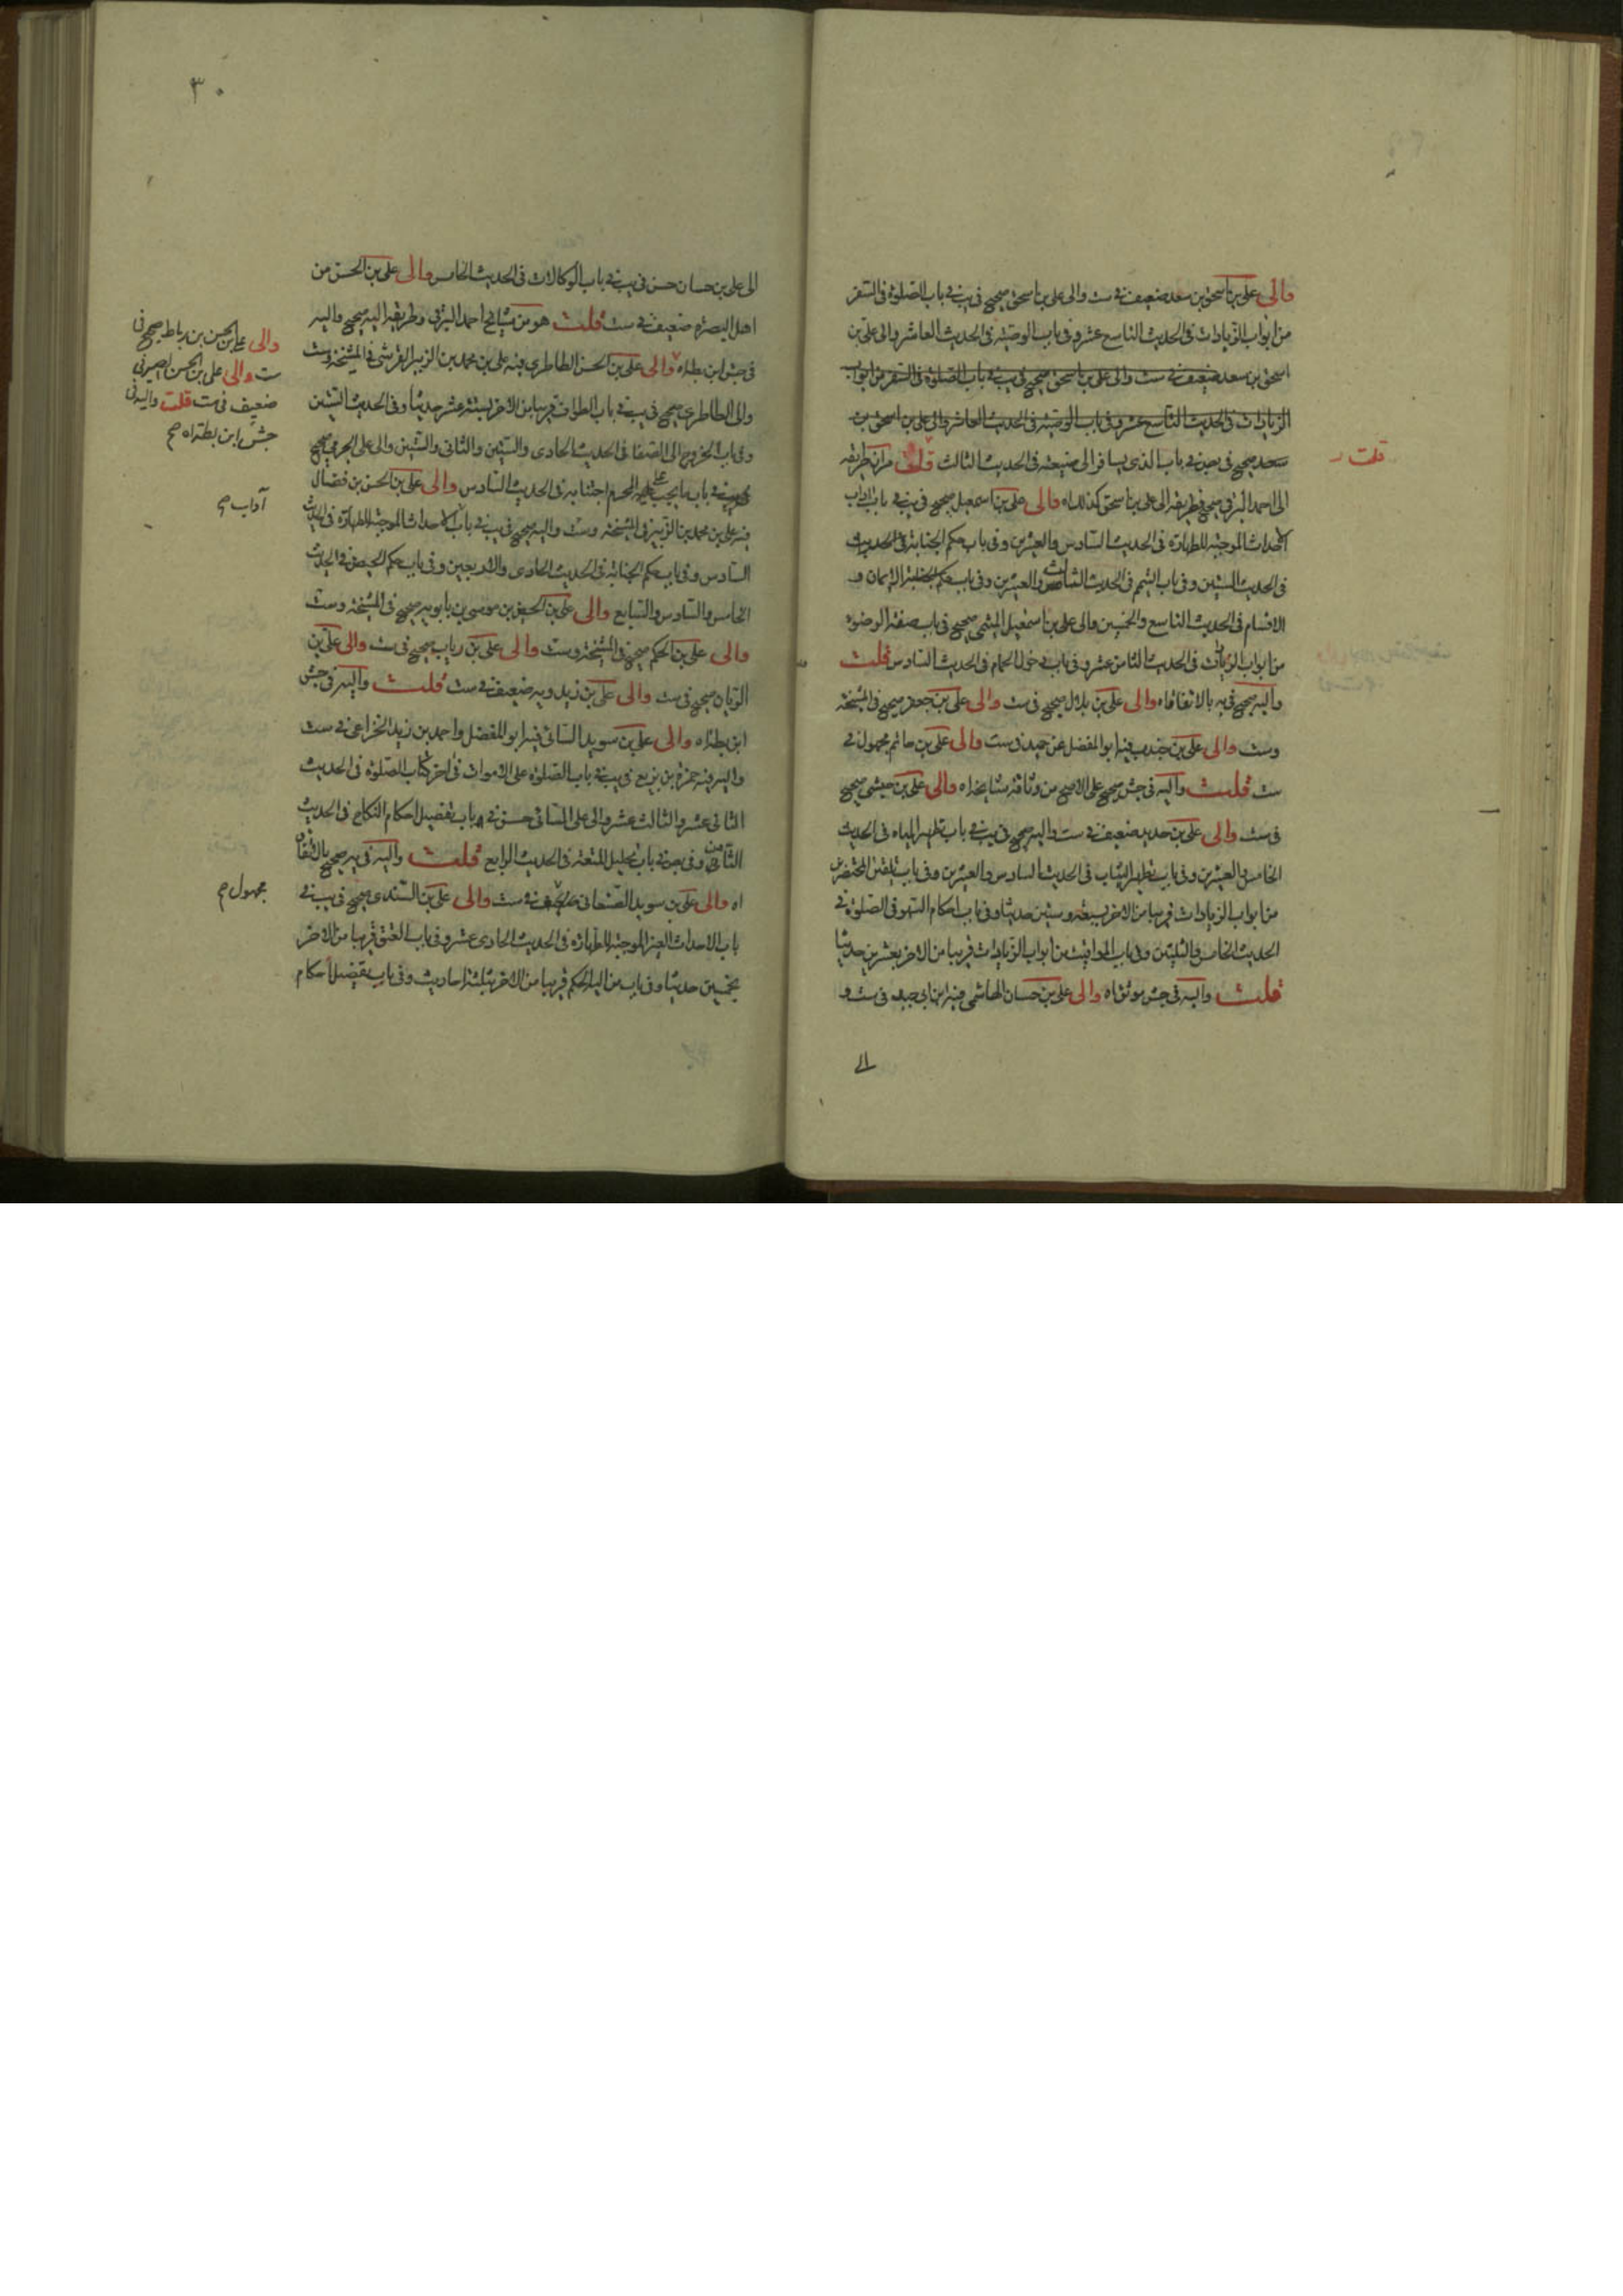 والى علي بن اسحق بن سعد ضعيف في ست والى علي بن اسحق صحيح في يب في باب الصلوة في السفر
من ابواب الزيادات في الحديث التاسع عشر وفي باب الوصية في الحديث العاشر والى علي بن
اسحق بن سعد ضعيف في ست والى علي بن اسحق صحيح في يب في باب الصلوة في السفر من ابواب
الزيادات في الحديث التاسع عشر وفي باب الوصية في الحديث العاشر والى علي بن اسحق بن
سعد صحيح في باب الذي يسافر الى ضيعته في الحديث الثالث قلت مر ان طريقه
قلت
الى احمد البرقي صحيح فطريقه الى علي بن اسحق كذلك اه والى علي بن اسمعيل صحيح في يب في باب اداب
الاحداث الموجبة للطهارة في الحديث السادس والعشرين وفي باب حكم الجنابة في الحديث
في الحديث الستين وفي باب التيمم في الحديث الثالث والعشرين وفي باب الايمان و
الاقسام في الحديث التاسع والخمسين والى علي بن اسمعيل الميثمي صحيح في باب صفة الوضوء
من ابواب الزيادات في الحديث الثامن عشر وفي باب دخول الحمام في الحديث السادس قلت
واليه صحيح في يه بالاتفاق اه والى علي بن بلال صحيح في ست والى علي بن جعفر صحيح في المشيخة
وست والى علي بن جندب فيه ابو المفضل عن حميد في ست والى علي بن حاتم مجهول في
ست قلت واليه في جش صحيح على الاصح من وثاقة مشايخه اه والى علي بن حبشي صحيح
في ست والى علي بن حديد ضعيف في ست واليه صحيح في يب في باب تطهير المياه في الحديث
الخامس والعشرين وفي باب تطهير الثياب في الحديث السادس والعشرين وفي باب تلقين المحتضرين
من ابواب الزيادات قريبا من الاخر بسبعة وستين حديثا وفي باب احكام السهو في الصلوة في
الحديث الخامس والثلثين وفي باب المواقيت من ابواب الزيادات قريبا من الاخر بعشرين حديثا
قلت واليه في جش موثق اه والى علي بن حسان الهاشمي فيه ابن ابي جيد في ست و
الى
٣٠
الى علي بن حسان حسن في يب في باب الوكالات في الحديث الخامس والى علي بن الحسن من
اهل البصرة ضعيف في ست قلت هو من مشايخ احمد البرقي وطريقه اليه صحيح واليه
في جش ابن بطة اه والى علي بن الحسن الطاطري فيه علي بن محمد بن الزبير القرشي في المشيخة وست
والى الطاطري صحيح في يب في باب الطواف قريبا من الاخر بستة عشر حديثا وفي الحديث الستين
وفي باب الخروج الى الصفا في الحديث الحادي والستين والثاني والستين والى علي الجرمي صحيح
في باب ما يجب على المحرم اجتنابه في الحديث السادس والى علي بن الحسن بن فضال
فيه علي بن محمد بن الزبير في المشيخة وست واليه صحيح في يب في باب الاحداث الموجبة للطهارة في الحديث
السادس وفي باب حكم الجنابة في الحديث الحادي والاربعين وفي باب حكم الحيض في الحديث
الخامس والسادس والسابع والى علي بن الحسين بن موسى بن بابويه صحيح في المشيخة وست
والى علي بن الحكم صحيح في المشيخة وست والى علي بن رياب صحيح في ست والى علي بن
الريان صحيح في ست والى علي بن زيدويه ضعيف في ست قلت واليه في جش
ابن بطة اه والى علي بن سويد السائي فيه ابو المفضل واحمد بن زيد الخزاعي في ست
واليه فيه حمزة بن بزيع في يب في باب الصلوة على الاموات في اخر كتاب الصلوة في الحديث
الثاني عشر والثالث عشر والى علي السائي حسن في باب تفصيل احكام النكاح في الحديث
الثامن وفي باب تحليل المتعة في الحديث الرابع قلت واليه في يه صحيح بالاتفاق
اه والى علي بن سويد الصنعاني في ست والى علي بن السندي صحيح في يب في
باب الاحداث الغير الموجبة للطهارة في الحديث الحادي عشر وفي باب العتق قريبا من الاخر
بخمسين حديثا وفي باب من اليه الحكم قريبا من الاخر بثلثة احاديث وفي باب تفصيل احكام
والى علي بن الحسن بن رباط صحيح في
ست والى علي بن الحسن الصيرفي
ضعيف في ست قلت واليه في
جش ابن بطة اه صح
آداب صح
مجهول صح